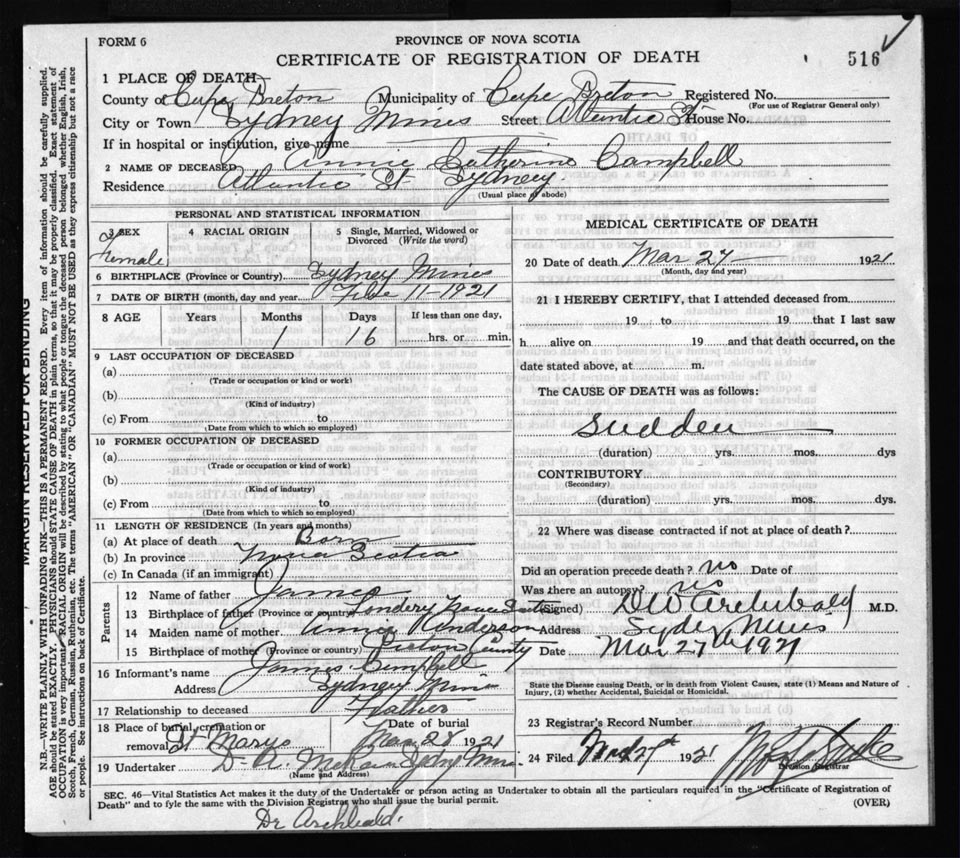 FORM 6
PROVINCE OF NOVA SCOTIA
CERTIFICATE OF REGISTRATION OF DEATH
516
1 PLACE OF DEATH
County of Cape Breton Municipality of Cape Breton Registered No.
(For use of Registrar General only)
City or Town Sydney Mines Street Atlantic St. House No.
If in hospital or institution, give name
2 NAME OF DECEASED Annie Catherine Campbell
Residence Atlantic St Sydney
(Usual place of abode)
PERSONAL AND STATISTICAL INFORMATION
3 SEX 4 RACIAL ORIGIN 5 Single, Married, Widowed or Divorced (Write the word)
Female
6 BIRTHPLACE (Province or Country) Sydney Mines
7 DATE OF BIRTH (month, day and year) Feb 11-1921
8 AGE Years Months Days If less than one day,
1 16 hrs. or min.
9 LAST OCCUPATION OF DECEASED
(a)
(Trade or occupation or kind or work)
(b)
(Kind of industry)
(c) From to
(Date from which to which so employed)
10 FORMER OCCUPATION OF DECEASED
(a)
(Trade or occupation or kind of work)
(b)
(Kind of industry)
(c) From to
(Date from which to which so employed)
11 LENGTH OF RESIDENCE (In years and months)
(a) At place of death Born
(b) In province Nova Scotia
(c) In Canada (if an immigrant)
Parents
12 Name of father James
13 Birthplace of father (Province or country)
14 Maiden name of mother Annie Anderson
15 Birthplace of mother (Province or country) County
16 Informant's name James Campbell
Address Sydney Mines
17 Relationship to deceased Father
18 Place of burial, cremation or removal St Marys Date of burial Mar 28 1921
19 Undertaker Sydney Mines
(Name and Address)
MEDICAL CERTIFICATE OF DEATH
20 Date of death Mar 27 1921
(Month, day and year)
21 I HEREBY CERTIFY, that I attended deceased from
19 to 19 that I last saw
h alive on 19 and that death occurred, on the
date stated above, at m.
The CAUSE OF DEATH was as follows:
Sudden
(duration) yrs. mos. dys
CONTRIBUTORY
(Secondary)
(duration) yrs. mos. dys.
22 Where was disease contracted if not at place of death?
Did an operation precede death? no Date of
Was there an autopsy? no
(Signed) DW Archibald M.D.
Address Sydney Mines
Date Mar 27th 1921
State the Disease causing Death, or in death from Violent Causes, state (1) Means and Nature of
Injury, (2) whether Accidental, Suicidal or Homicidal.
23 Registrar's Record Number
24 Filed 1921
Division Registrar
SEC. 46—Vital Statistics Act makes it the duty of the Undertaker or person acting as Undertaker to obtain all the particulars required in the "Certificate of Registration of
Death" and to fyle the same with the Division Registrar who shall issue the burial permit.
(OVER)
Dr Archibald.
MARGIN RESERVED FOR BINDING
N.B.—WRITE PLAINLY WITH UNFADING INK—THIS IS A PERMANENT RECORD. Every item of information should be carefully supplied.
AGE should be stated EXACTLY. PHYSICIANS should STATE CAUSE OF DEATH in plain terms, so that it may be properly classified. Exact statement of
OCCUPATION is very important. RACIAL ORIGIN will be described by stating to what people or tongue the deceased person belonged whether English, Irish,
Scotch, French, German, Russian, Ruthenian, etc. The terms "AMERICAN" OR "CANADIAN" MUST NOT BE USED as they express citizenship but not a race
or people. See instructions on back of Certificate.